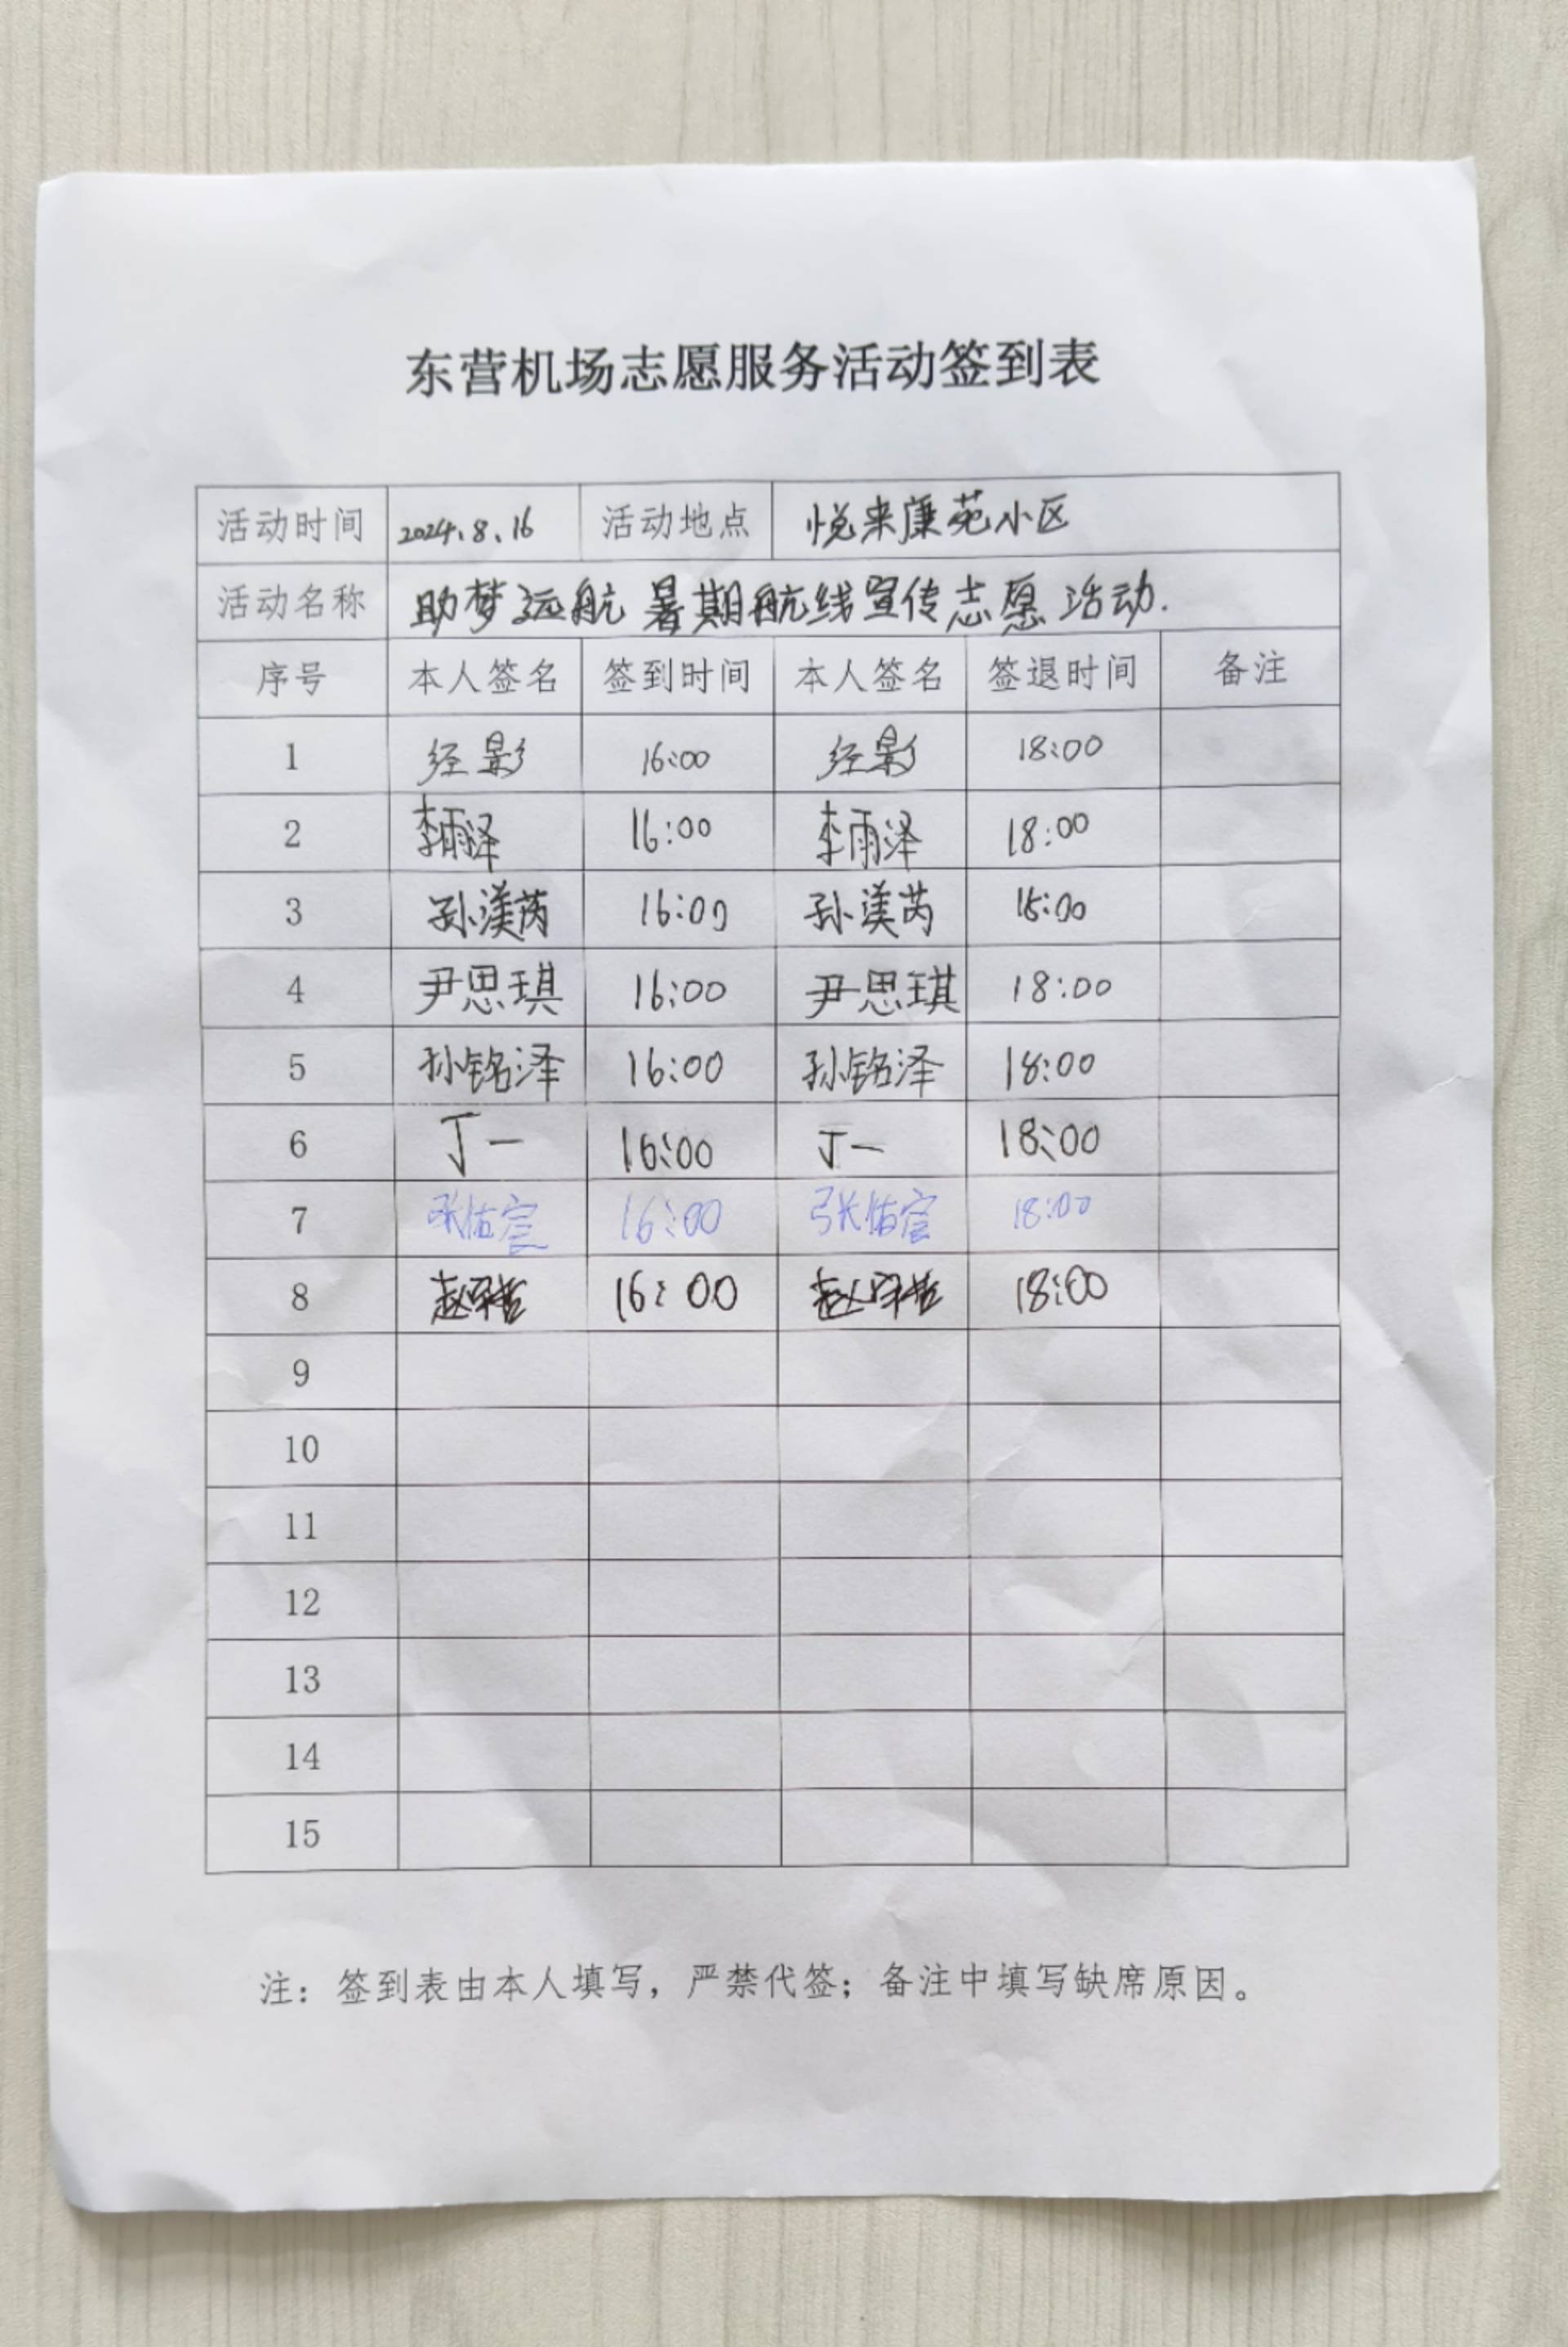 东营机场志愿服务活动签到表
活动时间 2024.8.16 活动地点 悦来康苑小区
活动名称 助梦远航 暑期航线宣传志愿活动.
序号 本人签名 签到时间 本人签名 签退时间 备注
1 经影 16:00 经影 18:00
2 李雨泽 16:00 李雨泽 18:00
3 孙渼芮 16:00 孙渼芮 18:00
4 尹思琪 16:00 尹思琪 18:00
5 孙铭泽 16:00 孙铭泽 18:00
6 丁一 16:00 丁一 18:00
7 16:00 18:00
8 16:00 18:00
9
10
11
12
13
14
15
注：签到表由本人填写，严禁代签；备注中填写缺席原因。